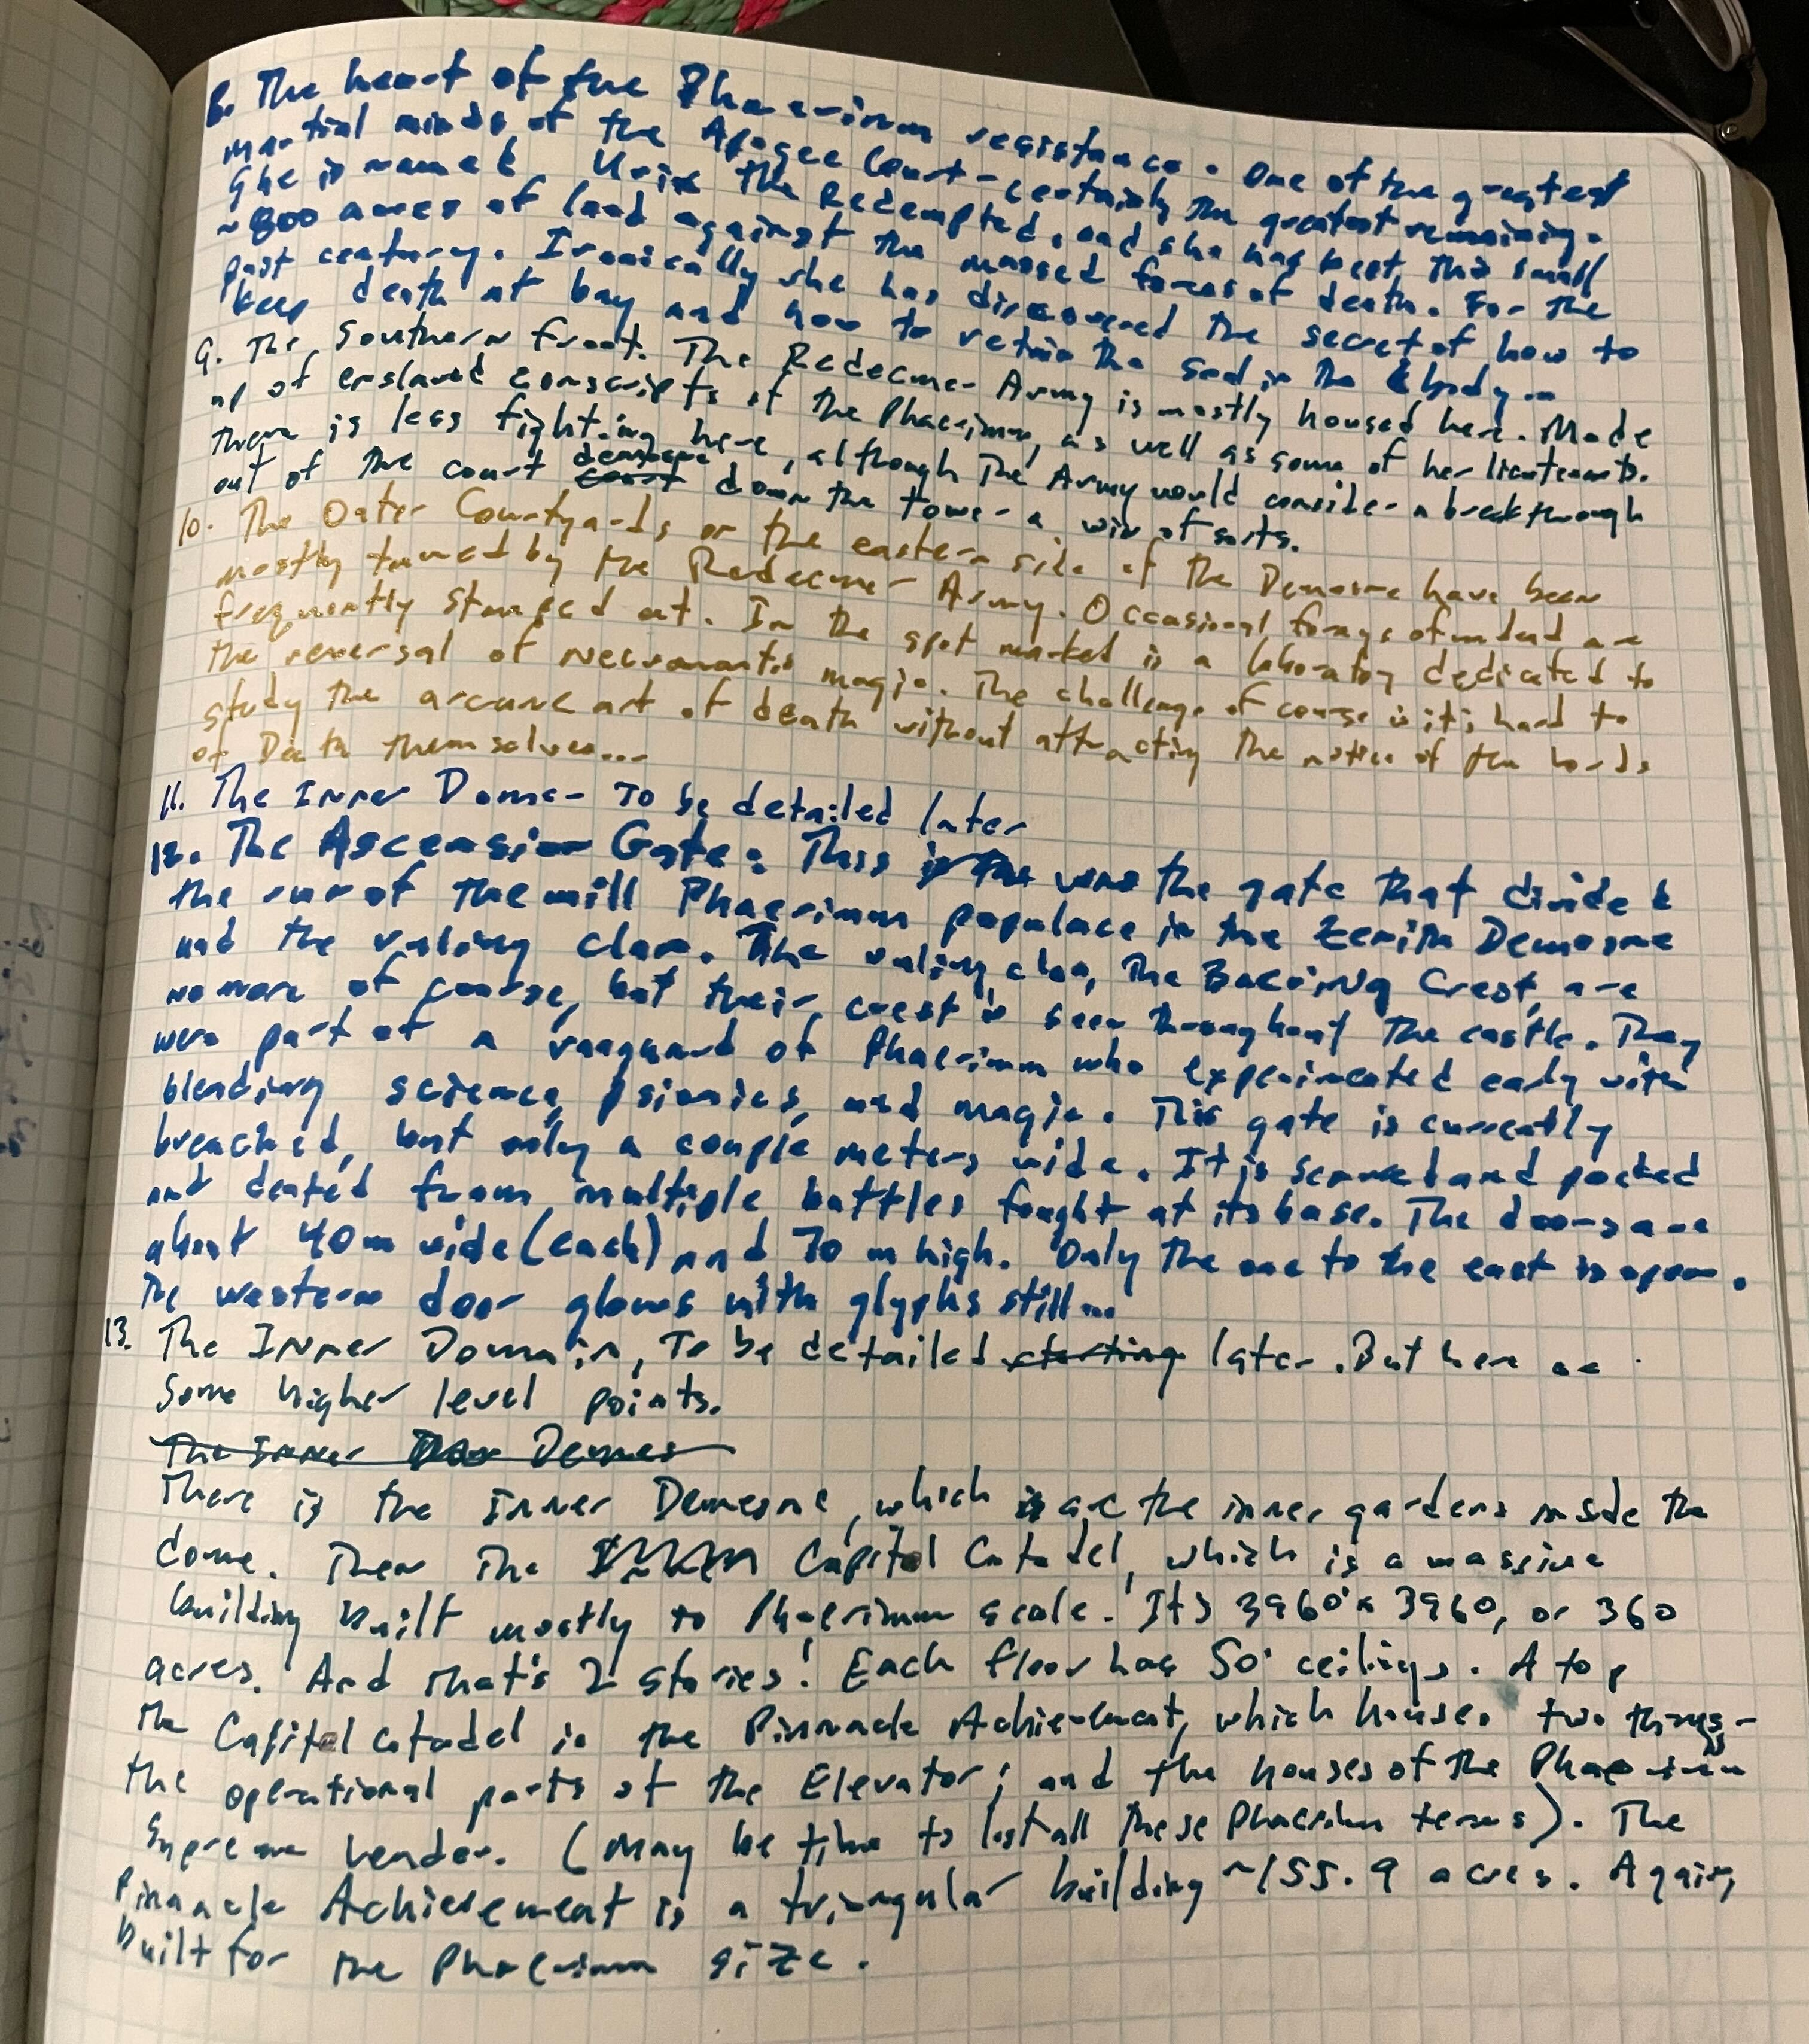 8. The heart of the Phaerimm resistance. One of the greatest
martial minds of the Apogee Court - certainly the greatest remaining.
She is named the Redempted, and she has kept this small
~800 acres of land against the massed forces of death. For the
past century. Ironically she has discovered the secret of how to
keep death at bay and how to retain the soul in the body...
9. The Southern Front. The Redeemer Army is mostly housed here. Made
up of enslaved conscripts of the Phaerimm, as well as some of her lieutenants.
There is less fighting here, although the Army would consider a breakthrough
out of the court demesne down the tower a win of sorts.
10. The Outer Courtyards on the eastern side of the Demesne have been
mostly tamed by the Redeemer Army. Occasional forays of undead are
frequently stamped out. In the spot marked is a laboratory dedicated to
the reversal of necromantic magic. The challenge of course is it's hard to
study the arcane art of death without attracting the notice of the Lords
of Death themselves...
11. The Inner Dome - To be detailed later
12. The Ascension Gate. This was the gate that divided
the run of the mill Phaerimm populace in the Zenith Demesne
and the ruling class. The ruling class, the Crest, are
no more of course, but their crest is seen throughout the castle. They
were part of a vanguard of Phaerimm who experimented early with
blending science, psionics, and magic. This gate is currently
breached, but only a couple meters wide. It is scarred and pocked
and dented from multiple battles fought at its base. The doors are
about 40m wide (each) and 70 m high. Only the one to the east is open.
The western door glows with glyphs still...
13. The Inner Domain, To be detailed starting later. But here are
some higher level points.
The Inner Demes
There is the Inner Demesne, which is are the inner gardens inside the
dome. Then the Capitol Citadel, which is a massive
building built mostly to Phaerimm scale. It's 3960' x 3960, or 360
acres. And that's 2 stories! Each floor has 50' ceilings. Atop
the Capitol Citadel is the Pinnacle Achievement, which houses two things -
the operational parts of the Elevator; and the houses of the Phaerimm
Supreme Leader. (May be time to list all these Phaerimm terms). The
Pinnacle Achievement is a triangular building ~155.9 acres. Again,
built for the Phaerimm size.